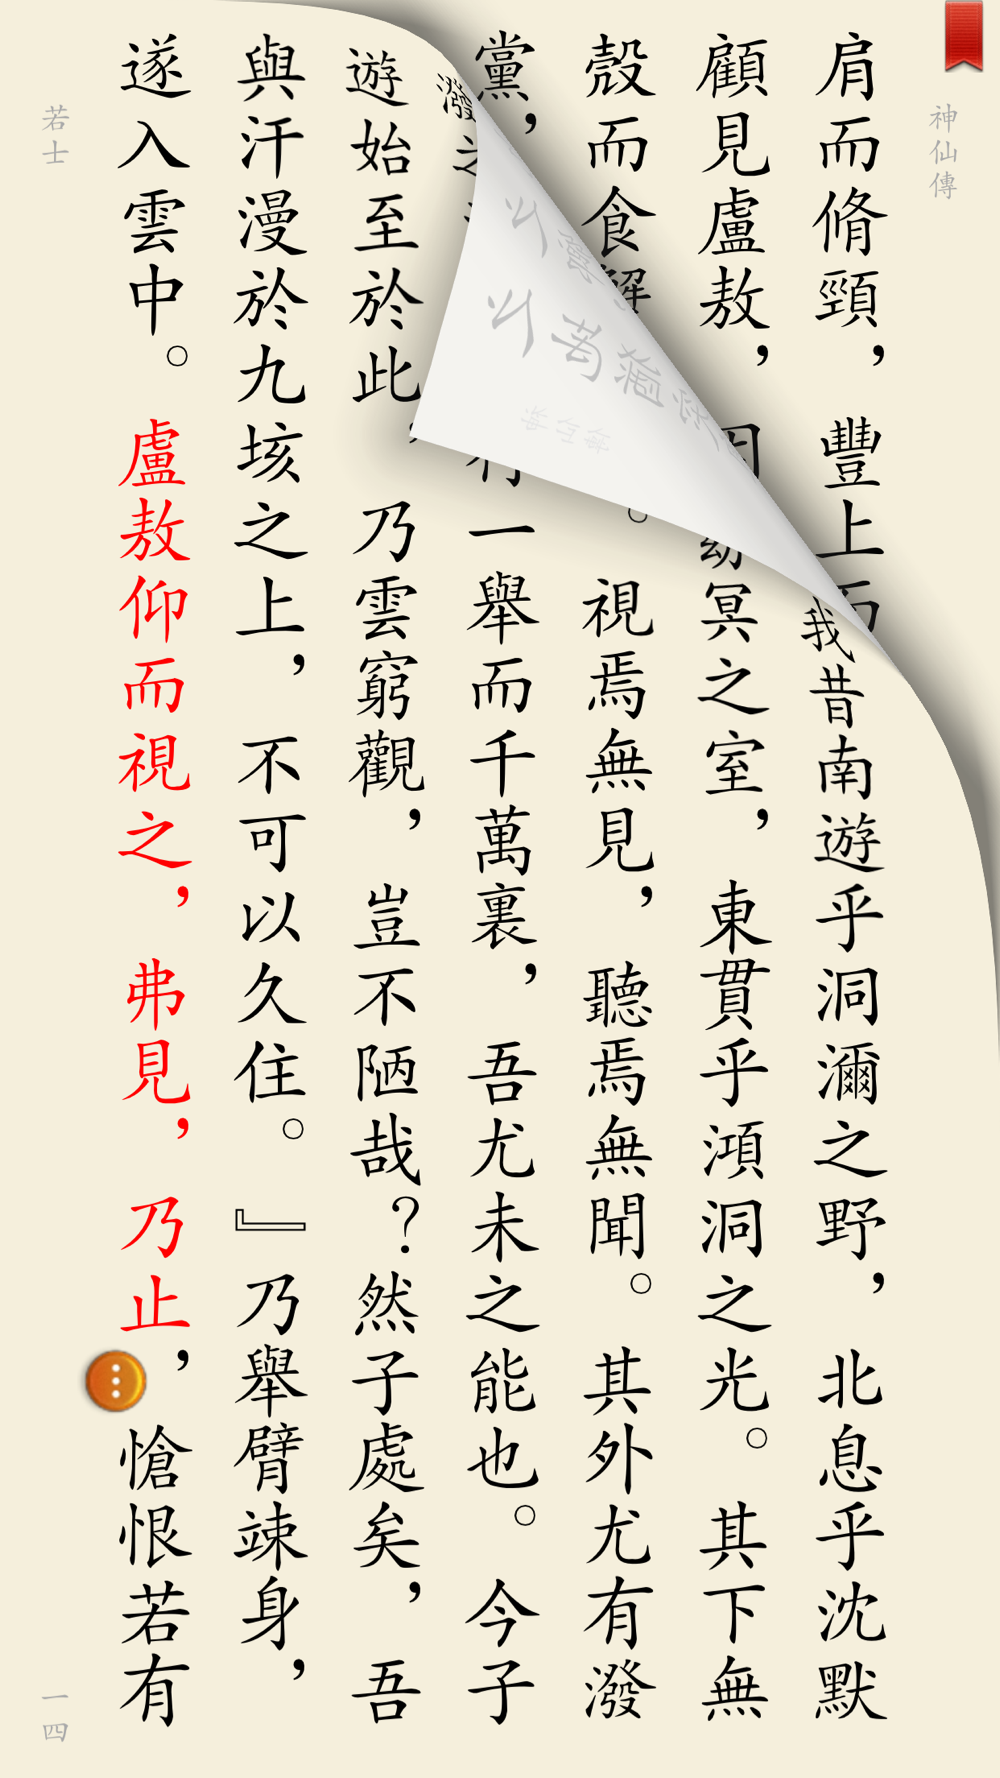 神仙傳
肩而脩頸，豐上而
我昔南遊乎洞瀰之野，北息乎沈默
顧見盧敖，
冥之室，東貫乎澒洞之光。其下無
殼而食蟹
。視焉無見，聽焉無聞。其外尤有潑
黨，
潑之
一舉而千萬裏，吾尤未之能也。今子
遊始至於此，乃雲窮觀，豈不陋哉？然子處矣，吾
與汗漫於九垓之上，不可以久住。』乃舉臂竦身，
遂入雲中。盧敖仰而視之，弗見，乃止，愴恨若有
若士
一四